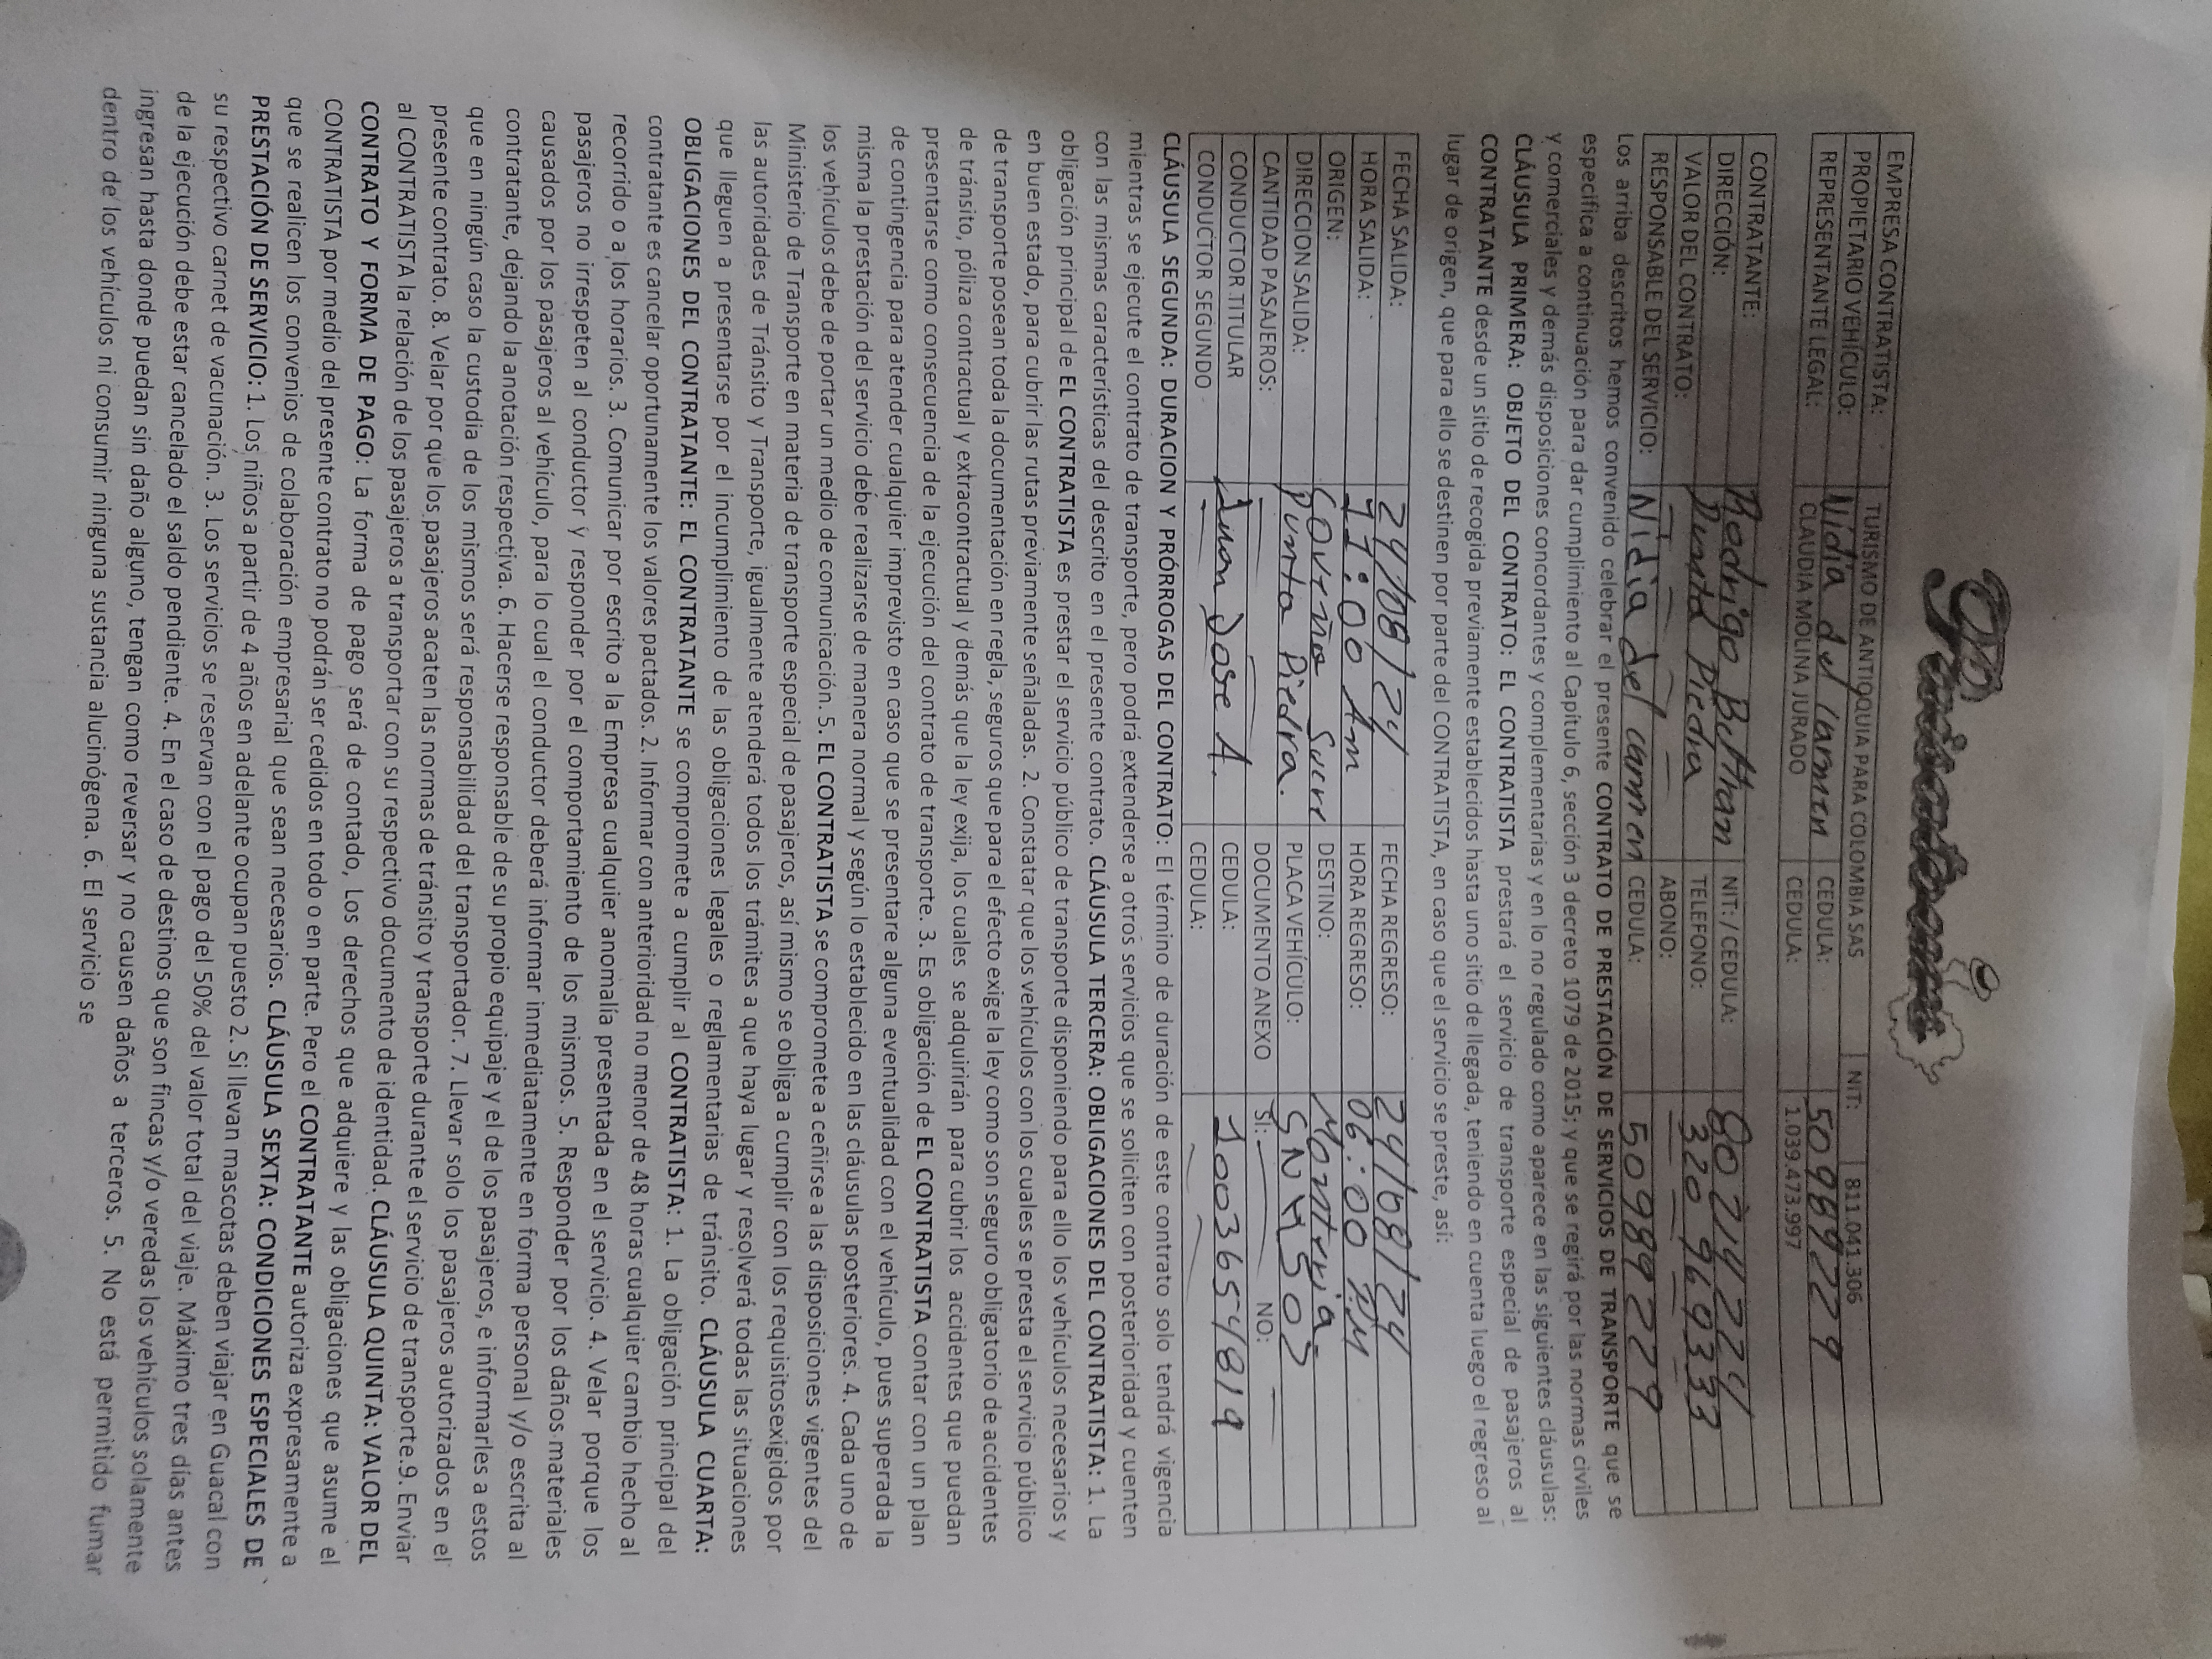 EMPRESA CONTRATISTA: TURISMO DE ANTIOQUIA PARA COLOMBIA SAS NIT: 811.041.306
PROPIETARIO VEHÍCULO: Nidia del Carmen CEDULA: 50989229
REPRESENTANTE LEGAL: CLAUDIA MOLINA JURADO CEDULA: 1.039.473.997
CONTRATANTE: Rodrigo Beltran NIT: / CEDULA: 80214224
DIRECCIÓN: Punta Piedra TELEFONO: 320 9649333
VALOR DEL CONTRATO: ABONO:
RESPONSABLE DEL SERVICIO: Nidia del carmen CEDULA: 50989229
Los arriba descritos hemos convenido celebrar el presente CONTRATO DE PRESTACIÓN DE SERVICIOS DE TRANSPORTE que se
especifica a continuación para dar cumplimiento al Capítulo 6, sección 3 decreto 1079 de 2015; y que se regirá por las normas civiles
y comerciales y demás disposiciones concordantes y complementarias y en lo no regulado como aparece en las siguientes cláusulas:
CLÁUSULA PRIMERA: OBJETO DEL CONTRATO: EL CONTRATISTA prestará el servicio de transporte especial de pasajeros al
CONTRATANTE desde un sitio de recogida previamente establecidos hasta uno sitio de llegada, teniendo en cuenta luego el regreso al
lugar de origen, que para ello se destinen por parte del CONTRATISTA, en caso que el servicio se preste, así:
FECHA SALIDA: 24/08/24 FECHA REGRESO: 24/08/24
HORA SALIDA: 11:00 Am HORA REGRESO: 06:00 PM
ORIGEN: Coveña Sucre DESTINO: Monteria
DIRECCION SALIDA: Punta Piedra. PLACA VEHÍCULO:
CANTIDAD PASAJEROS: DOCUMENTO ANEXO SI: NO:
CONDUCTOR TITULAR Juan Jose A. CEDULA: 1003654819
CONDUCTOR SEGUNDO CEDULA:
CLÁUSULA SEGUNDA: DURACION Y PRÓRROGAS DEL CONTRATO: El término de duración de este contrato solo tendrá vigencia
mientras se ejecute el contrato de transporte, pero podrá extenderse a otros servicios que se soliciten con posterioridad y cuenten
con las mismas características del descrito en el presente contrato. CLÁUSULA TERCERA: OBLIGACIONES DEL CONTRATISTA: 1. La
obligación principal de EL CONTRATISTA es prestar el servicio público de transporte disponiendo para ello los vehículos necesarios y
en buen estado, para cubrir las rutas previamente señaladas. 2. Constatar que los vehículos con los cuales se presta el servicio público
de transporte posean toda la documentación en regla, seguros que para el efecto exige la ley como son seguro obligatorio de accidentes
de tránsito, póliza contractual y extracontractual y demás que la ley exija, los cuales se adquirirán para cubrir los accidentes que puedan
presentarse como consecuencia de la ejecución del contrato de transporte. 3. Es obligación de EL CONTRATISTA contar con un plan
de contingencia para atender cualquier imprevisto en caso que se presentare alguna eventualidad con el vehículo, pues superada la
misma la prestación del servicio debe realizarse de manera normal y según lo establecido en las cláusulas posteriores. 4. Cada uno de
los vehículos debe de portar un medio de comunicación. 5. EL CONTRATISTA se compromete a ceñirse a las disposiciones vigentes del
Ministerio de Transporte en materia de transporte especial de pasajeros, así mismo se obliga a cumplir con los requisitosexigidos por
las autoridades de Tránsito y Transporte, igualmente atenderá todos los trámites a que haya lugar y resolverá todas las situaciones
que lleguen a presentarse por el incumplimiento de las obligaciones legales o reglamentarias de tránsito. CLÁUSULA CUARTA:
OBLIGACIONES DEL CONTRATANTE: EL CONTRATANTE se compromete a cumplir al CONTRATISTA: 1. La obligación principal del
contratante es cancelar oportunamente los valores pactados. 2. Informar con anterioridad no menor de 48 horas cualquier cambio hecho al
recorrido o a los horarios. 3. Comunicar por escrito a la Empresa cualquier anomalía presentada en el servicio. 4. Velar porque los
pasajeros no irrespeten al conductor y responder por el comportamiento de los mismos. 5. Responder por los daños materiales
causados por los pasajeros al vehículo, para lo cual el conductor deberá informar inmediatamente en forma personal y/o escrita al
contratante, dejando la anotación respectiva. 6. Hacerse responsable de su propio equipaje y el de los pasajeros, e informarles a estos
que en ningún caso la custodia de los mismos será responsabilidad del transportador. 7. Llevar solo los pasajeros autorizados en el
presente contrato. 8. Velar por que los pasajeros acaten las normas de tránsito y transporte durante el servicio de transporte.9. Enviar
al CONTRATISTA la relación de los pasajeros a transportar con su respectivo documento de identidad. CLÁUSULA QUINTA: VALOR DEL
CONTRATO Y FORMA DE PAGO: La forma de pago será de contado, Los derechos que adquiere y las obligaciones que asume el
CONTRATISTA por medio del presente contrato no podrán ser cedidos en todo o en parte. Pero el CONTRATANTE autoriza expresamente a
que se realicen los convenios de colaboración empresarial que sean necesarios. CLÁUSULA SEXTA: CONDICIONES ESPECIALES DE
PRESTACIÓN DE SERVICIO: 1. Los niños a partir de 4 años en adelante ocupan puesto 2. Si llevan mascotas deben viajar en Guacal con
su respectivo carnet de vacunación. 3. Los servicios se reservan con el pago del 50% del valor total del viaje. Máximo tres días antes
de la ejecución debe estar cancelado el saldo pendiente. 4. En el caso de destinos que son fincas y/o veredas los vehículos solamente
ingresan hasta donde puedan sin daño alguno, tengan como reversar y no causen daños a terceros. 5. No está permitido fumar
dentro de los vehículos ni consumir ninguna sustancia alucinógena. 6. El servicio se